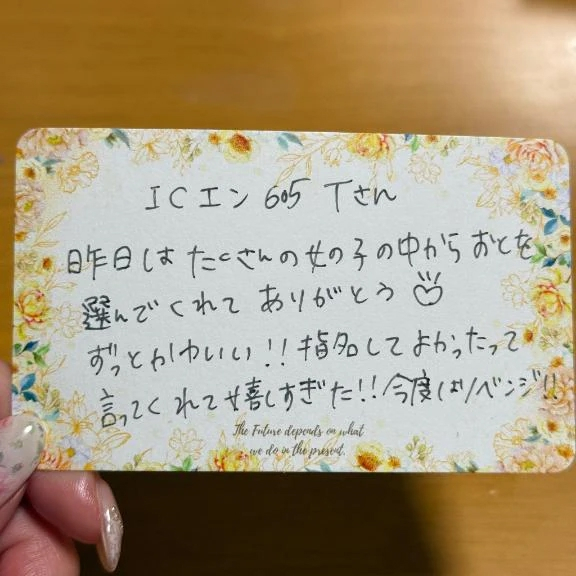 ICエン605 Tさん
昨日はたくさんの女の子の中からおとを
選んでくれてありがとう
ずっとかわいい!!指名してよかったって
言ってくれて嬉しすぎた!!今度はリベンジ!!
The Future depends on what
we do in the present.